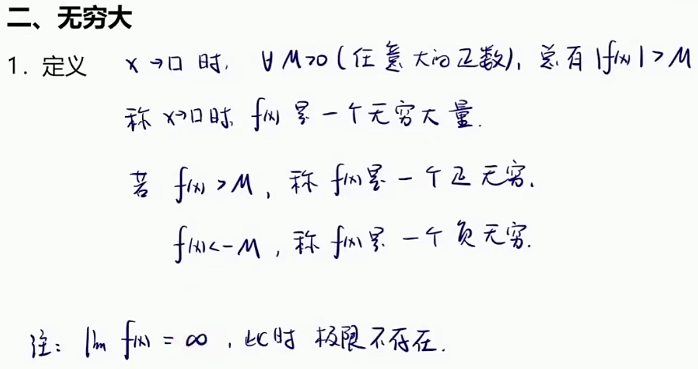 二、无穷大
1. 定义 x→□ 时, ∀ M>0 (任意大的正数), 总有 |f(x)| > M
称 x→□时, f(x) 是一个无穷大量.
若 f(x) > M, 称 f(x)是一个正无穷.
f(x)<-M, 称 f(x)是一个负无穷.
注: lim f(x) = ∞, 此时 极限不存在.